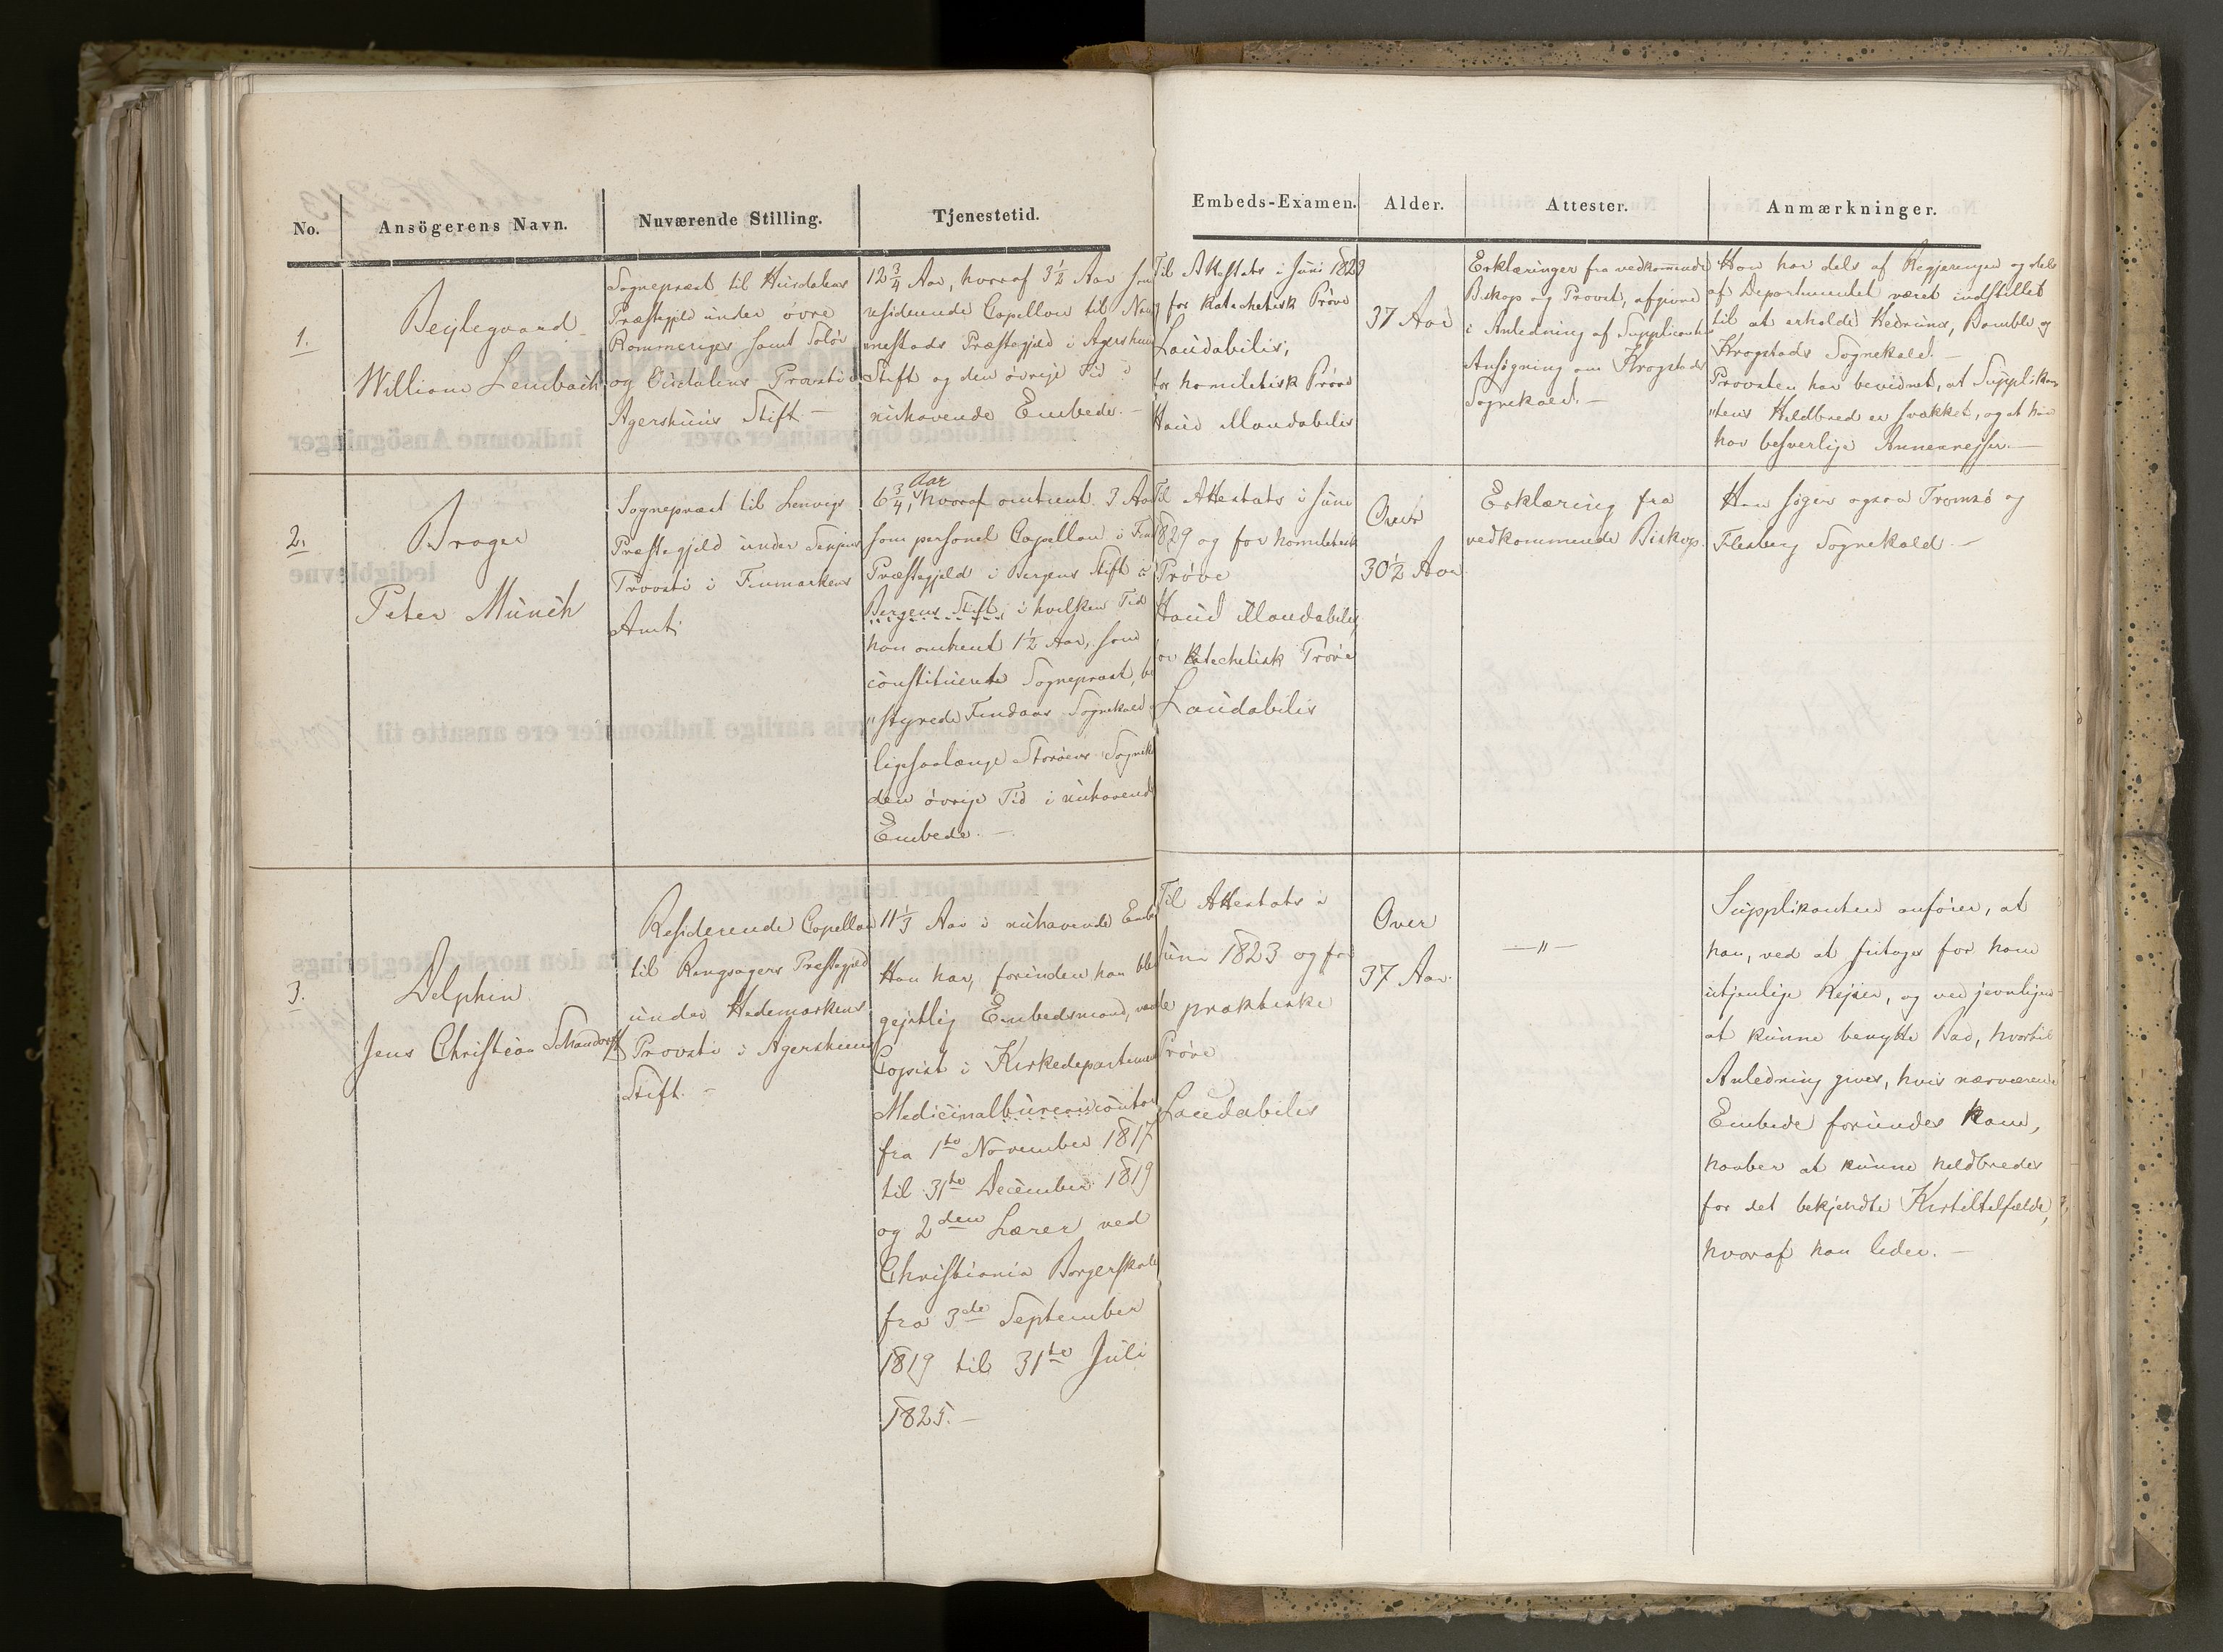 No.
Ansögerens Navn.
Nuværende Stilling.
Tjenestetid.
Embeds-Examen.
Alder.
Attester.
Anmærkninger.
1.
Bejlegaard
William Lembach
Sognepræst til Hurdalens
Præstegjeld under övre
Rommeriges samt Solör
og Oudalens Provsti i
Agershuus Stift. —
12 3/4 Aar, hvoraf 3 1/2 Aar som
residerende Capellan til Nan
nestads Præstegjeld i Agershuus
Stift og den övrige Tid i
nuhavende Embede. —
Til Attestats i Juni 1823
og for katechetisk Pröve
Laudabilis,
for homiletisk Pröve
Haud illaudabilis
37 Aar
Erklæringer fra vedkommende
Biskop og Provst, afgivne
i Anledning af Supplicantens
Ansögning om Krogstads
Sognekald. —
Han har dels af Regjeringen og dels
af Departementet været indstillet
til at erholde Hedrums, Bamble og
Krogstads Sognekald. —
Provsten har bevidnet, at Supplikan
"tens Helbred er svækket, og at han
har besverlige Annexrejser. —
2.
Brager
Peter Münch
Sognepræst til Lenvigs
Præstegjeld under Senjens
Provsti i Finmarkens
Amt.
Aar
6 3/4, hvoraf omtrent 3 Aar
som personel Capellan i
Præstegjeld i Bergens Stift i
Bergens Stift, i hvilken Tid
han omtrent 1 1/2 Aar, som
constitueret Sognepræst, be
"styrede Findaas Sognekald
ligesaalænge Storöens Sognek
den övrige Tid i nuhavende
Embede. —
Til Attestats i Juni
1829 og for homiletisk
Pröve
Haud illaudabilis,
for katechetisk Pröve
Laudabilis
Over
30 1/2 Aar
Erklæring fra
vedkommende Biskop.
Han söger ogsaa Tromsö og
Flesberg Sognekald. —
3.
Delphin
Jens Christian Schandorff
Residerende Capellan
til Ringsagers Præstegjeld
under Hedemarkens
Provsti i Agershuus
Stift. —
11 1/3 Aar i nuhavende Embe
Han har, forinden han blev
gejstlig Embedsmand, været
Copist i Kirkedepartementets
Medicinalbureaucontor
fra 1ste November 1817
til 31te December 1819
og 2den Lærer ved
Christiania Borgerskole
fra 3de September
1819 til 31te Juli
1825. —
Til Attestats i
Juni 1823 og for
de praktiske
Pröve
Laudabilis
Over
37 Aar.
—"—
Supplikanten anförer, at
han, ved at fritages for ham
utjenlige Rejser, og ved jevnligen
at kunne benytte Bad, hvortil
Anledning gives, hvis nærværende
Embede forundes ham,
haaber at kunne helbredes
for det bekjendte Kirtiltilfælde,
hvoraf han lider. —